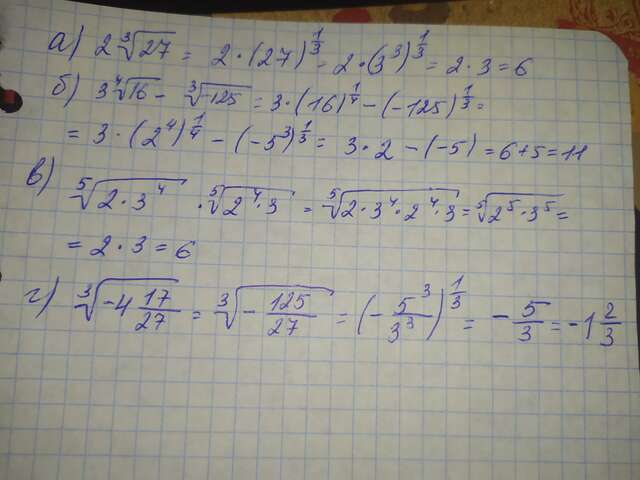 а) 2∛27 = 2·(27)^(1/3) = 2·(3³)^(1/3) = 2·3 = 6
б) 3∜16 - ∛-125 = 3·(16)^(1/4) - (-125)^(1/3) =
= 3·(2⁴)^(1/4) - (-5³)^(1/3) = 3·2 - (-5) = 6+5 = 11
в) ⁵√(2·3⁴) · ⁵√(2⁴·3) = ⁵√(2·3⁴·2⁴·3) = ⁵√(2⁵·3⁵) =
= 2·3 = 6
г) ∛(-4 17/27) = ∛(-125/27) = (-5³/3³)^(1/3) = -5/3 = -1 2/3